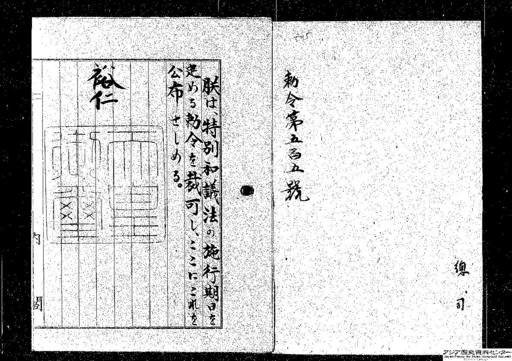 勅令第五百五號
總、司
朕は、特別和議法の施行期日を
定める勅令を裁可し、ここにこれを
公布せしめる。
裕仁
天皇御璽
内閣
アジア歴史資料センター